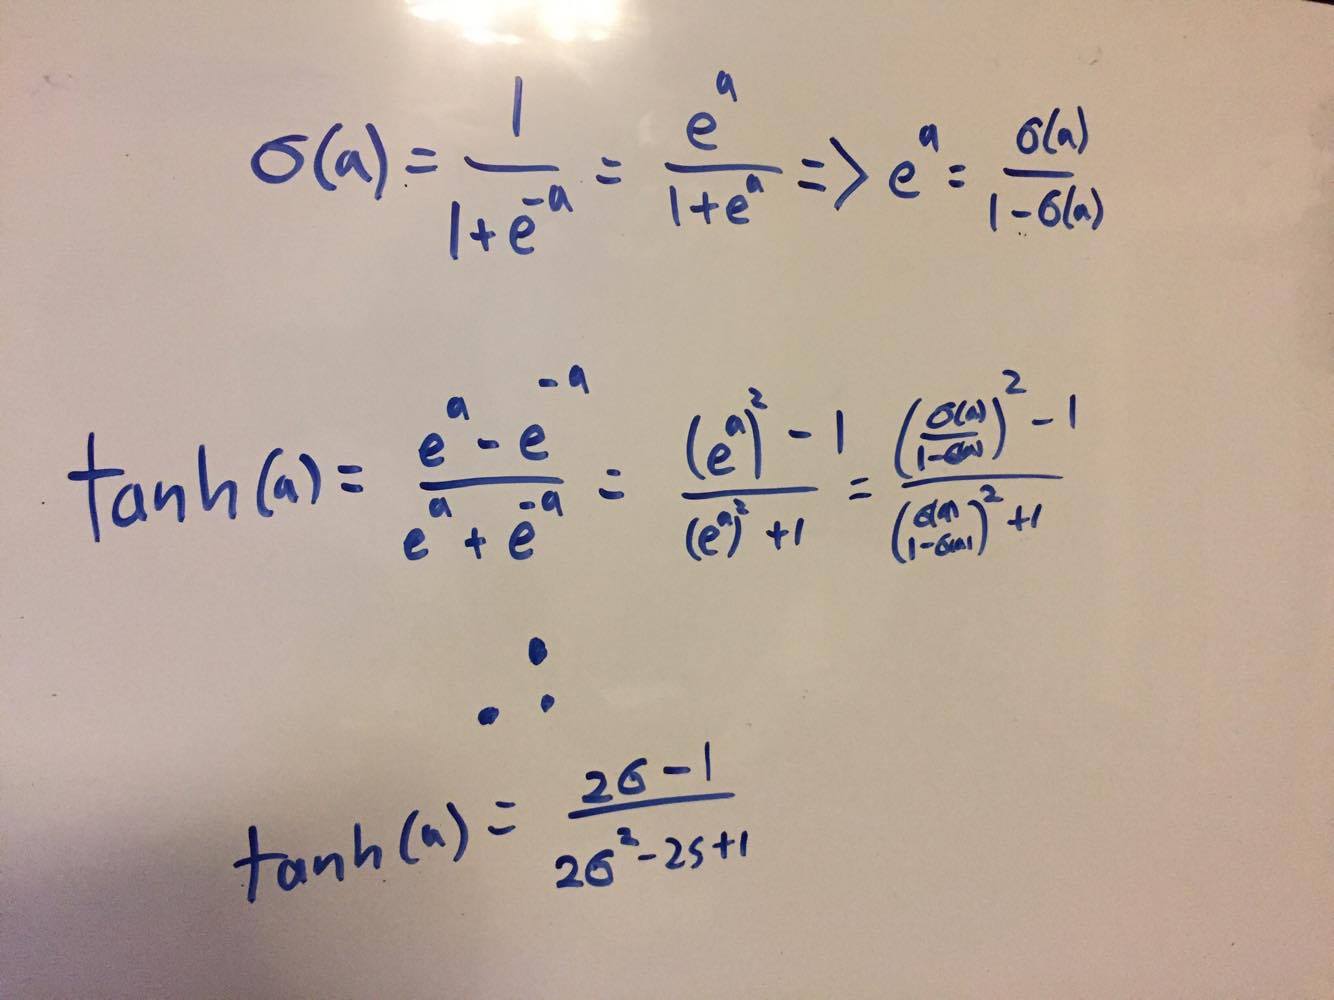 σ(a) = 1/(1+e^-a) = e^a/(1+e^a) => e^a = σ(a)/(1-σ(a))
tanh(a) = (e^a - e^-a)/(e^a + e^-a) = ((e^a)^2 - 1)/((e^a)^2 + 1) = ((σ(a)/(1-σ(a)))^2 - 1)/((σ(a)/(1-σ(a)))^2 + 1)
∴
tanh(a) = (2σ-1)/(2σ^2-2s+1)